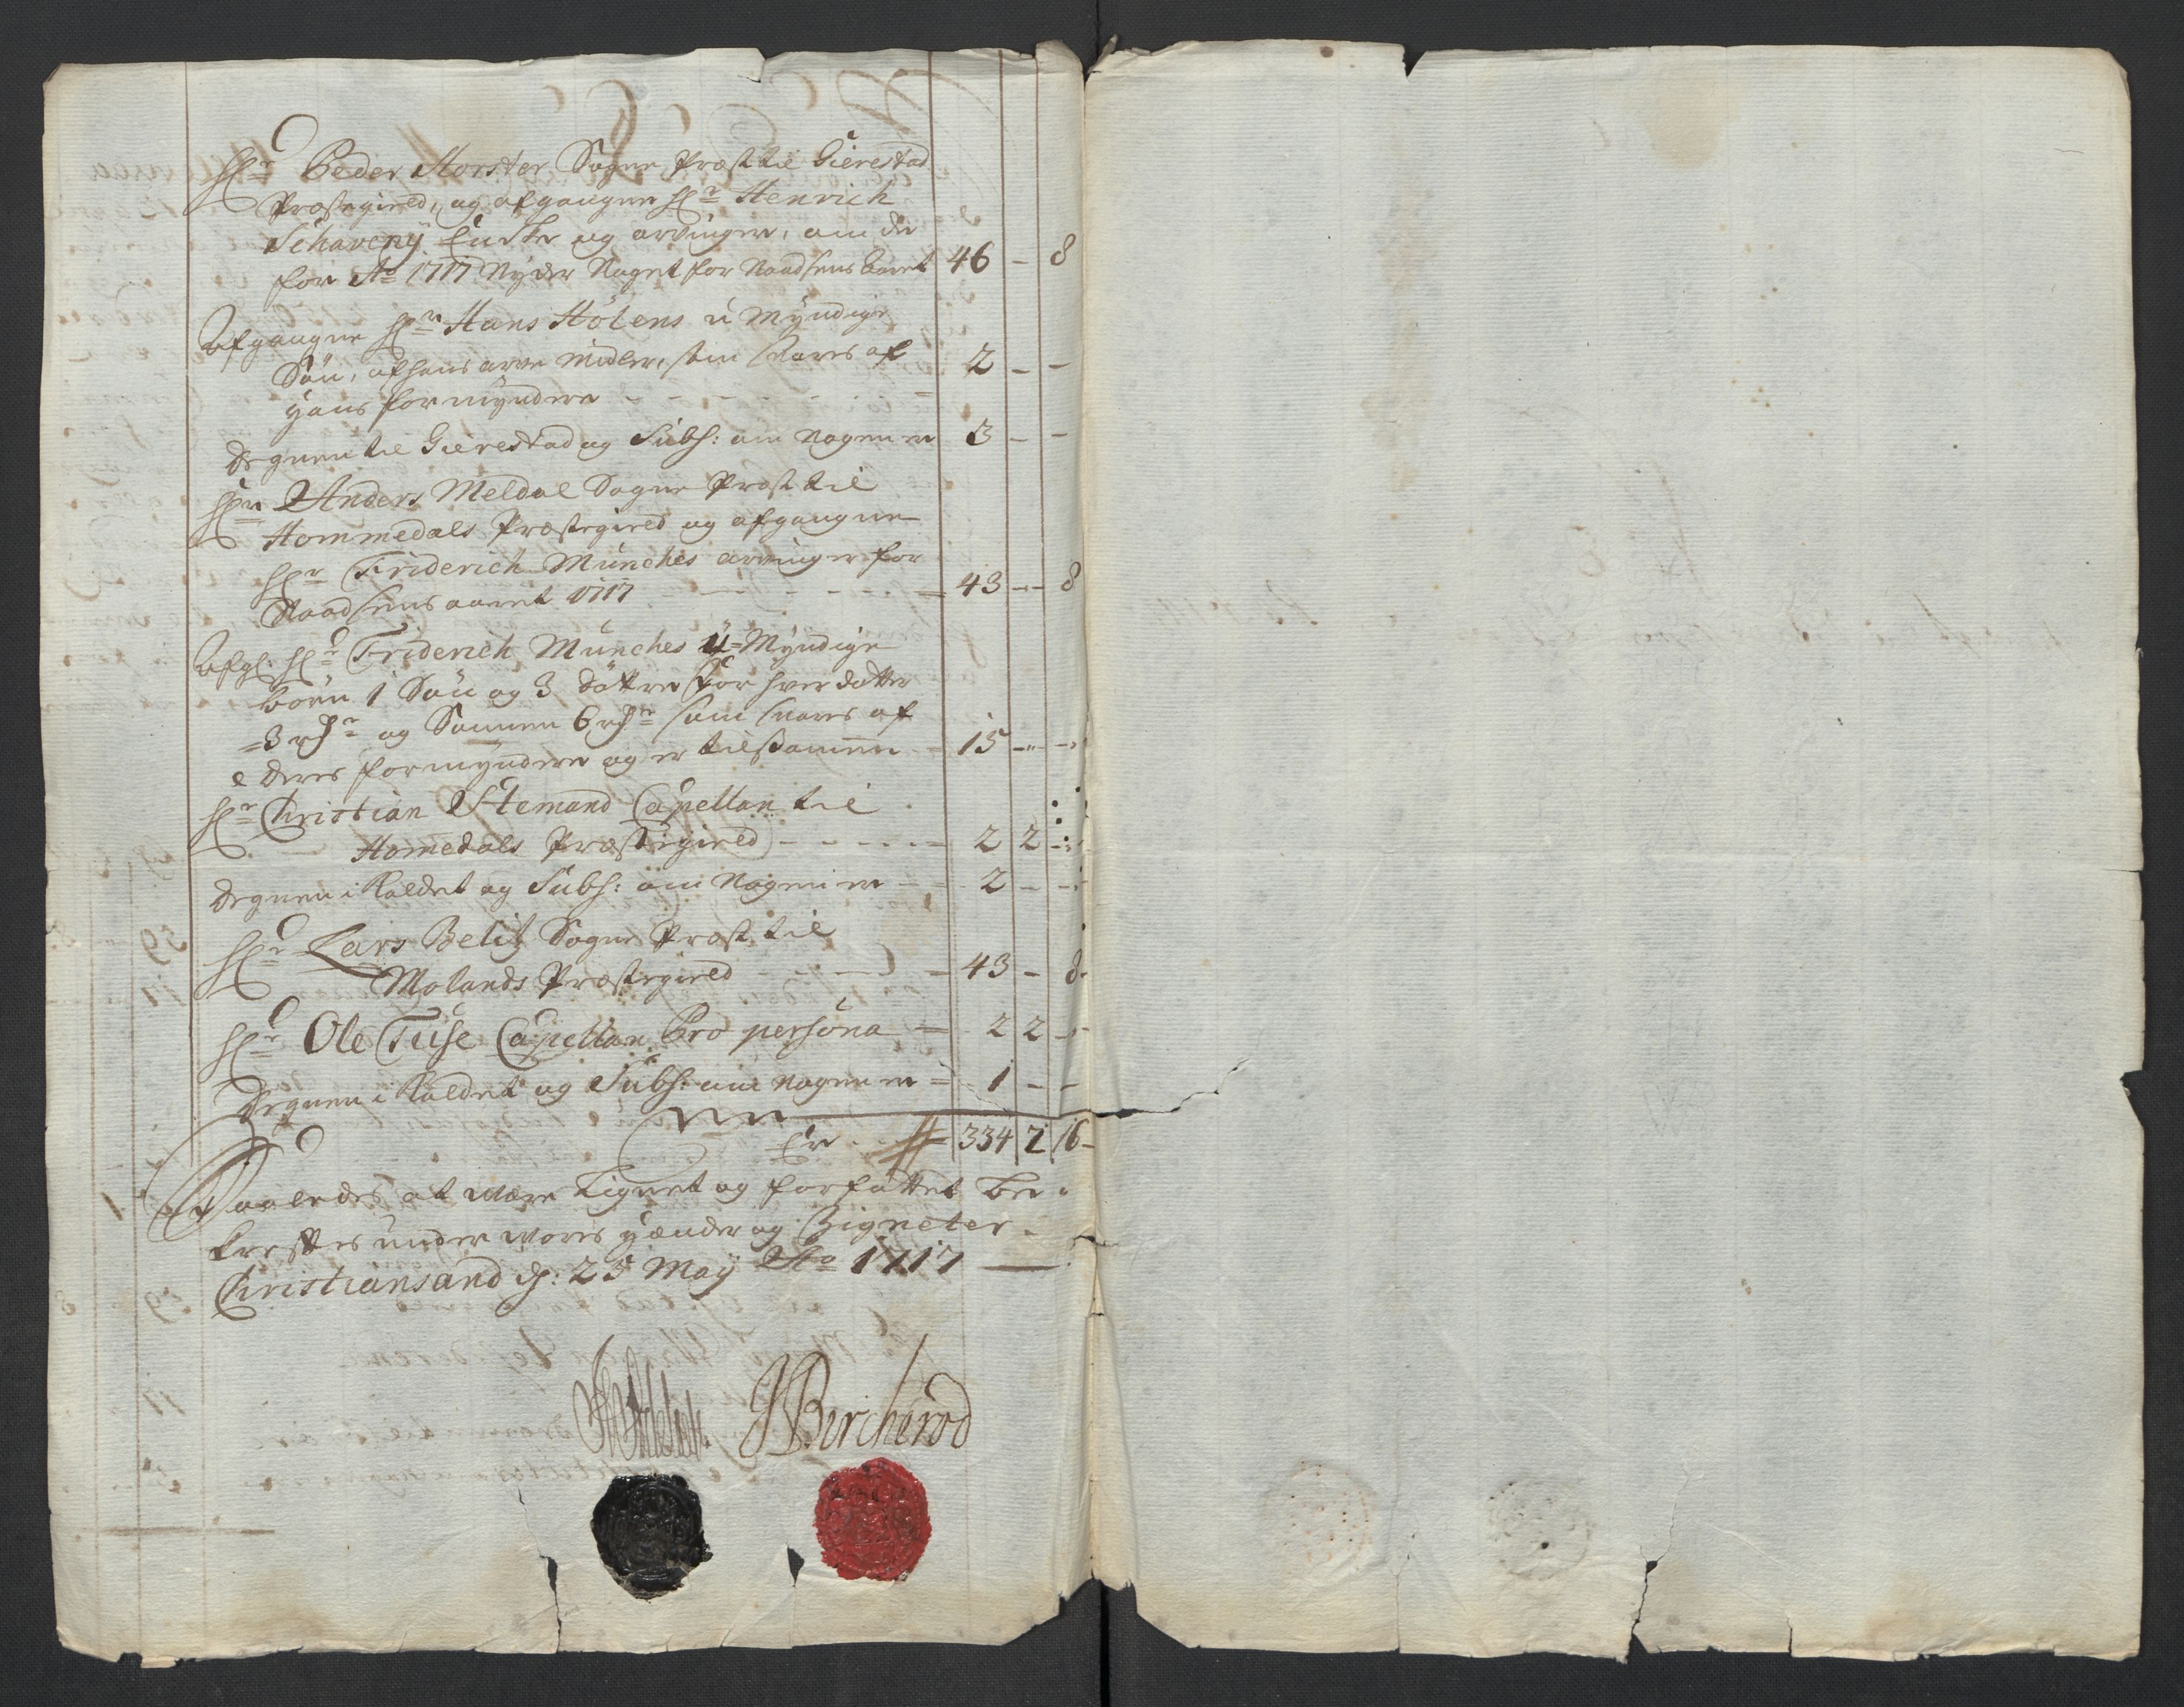 Hr Peder Horster Sogne Præst til Gierestad
Præstegield, og afgangne Hr Henrich
Schaveny Encke og arvinger, om de
for Ao 1717 Nyder Noget for Naadsens Aaret 46 - 8
Afgangne Hr Hans Hölens u Myndige
Sön, af hans arve Midler, som svares af 2 - -
hans formyndere - - - - - -
Degnen til Gierestad og Subst: om nogen er 3 - -
Hr Anders Meldal Sogne Præst til
Hommedals Præstegield og afgangne
Hr Friderich Münches arvinger for
Naadsens aaret 1717 - - - - - 43 - 8
Afgl: Hr Friderich Münches U=Myndige
börn 1 Sön og 3 Döttre for hver datter
3 rdr og Sönnen 6 rdr som svares af
deres formyndere og er tilsammen - 15 - -
Hr Christian Stemand Capellan til
Homedals Præstegield - - - - - 2 2 -
Degnen i Kaldet og Subst: om Nogen er - 2 - -
Hr Lars Belitz Sogne Præst til
Molands Præstegield - - - - 43 - 8
Hr Ole Tuse Capellan Pro persona - 2 2 -
Degnen i Kaldet og Subst: om nogen er - 1 - -
Er - - 334 2 16
Saaledes at være Lignet og forfattet be-
kreftes under vores hænder og Zigneter
Christiansand d: 25 May Ao 1717
JBircherod